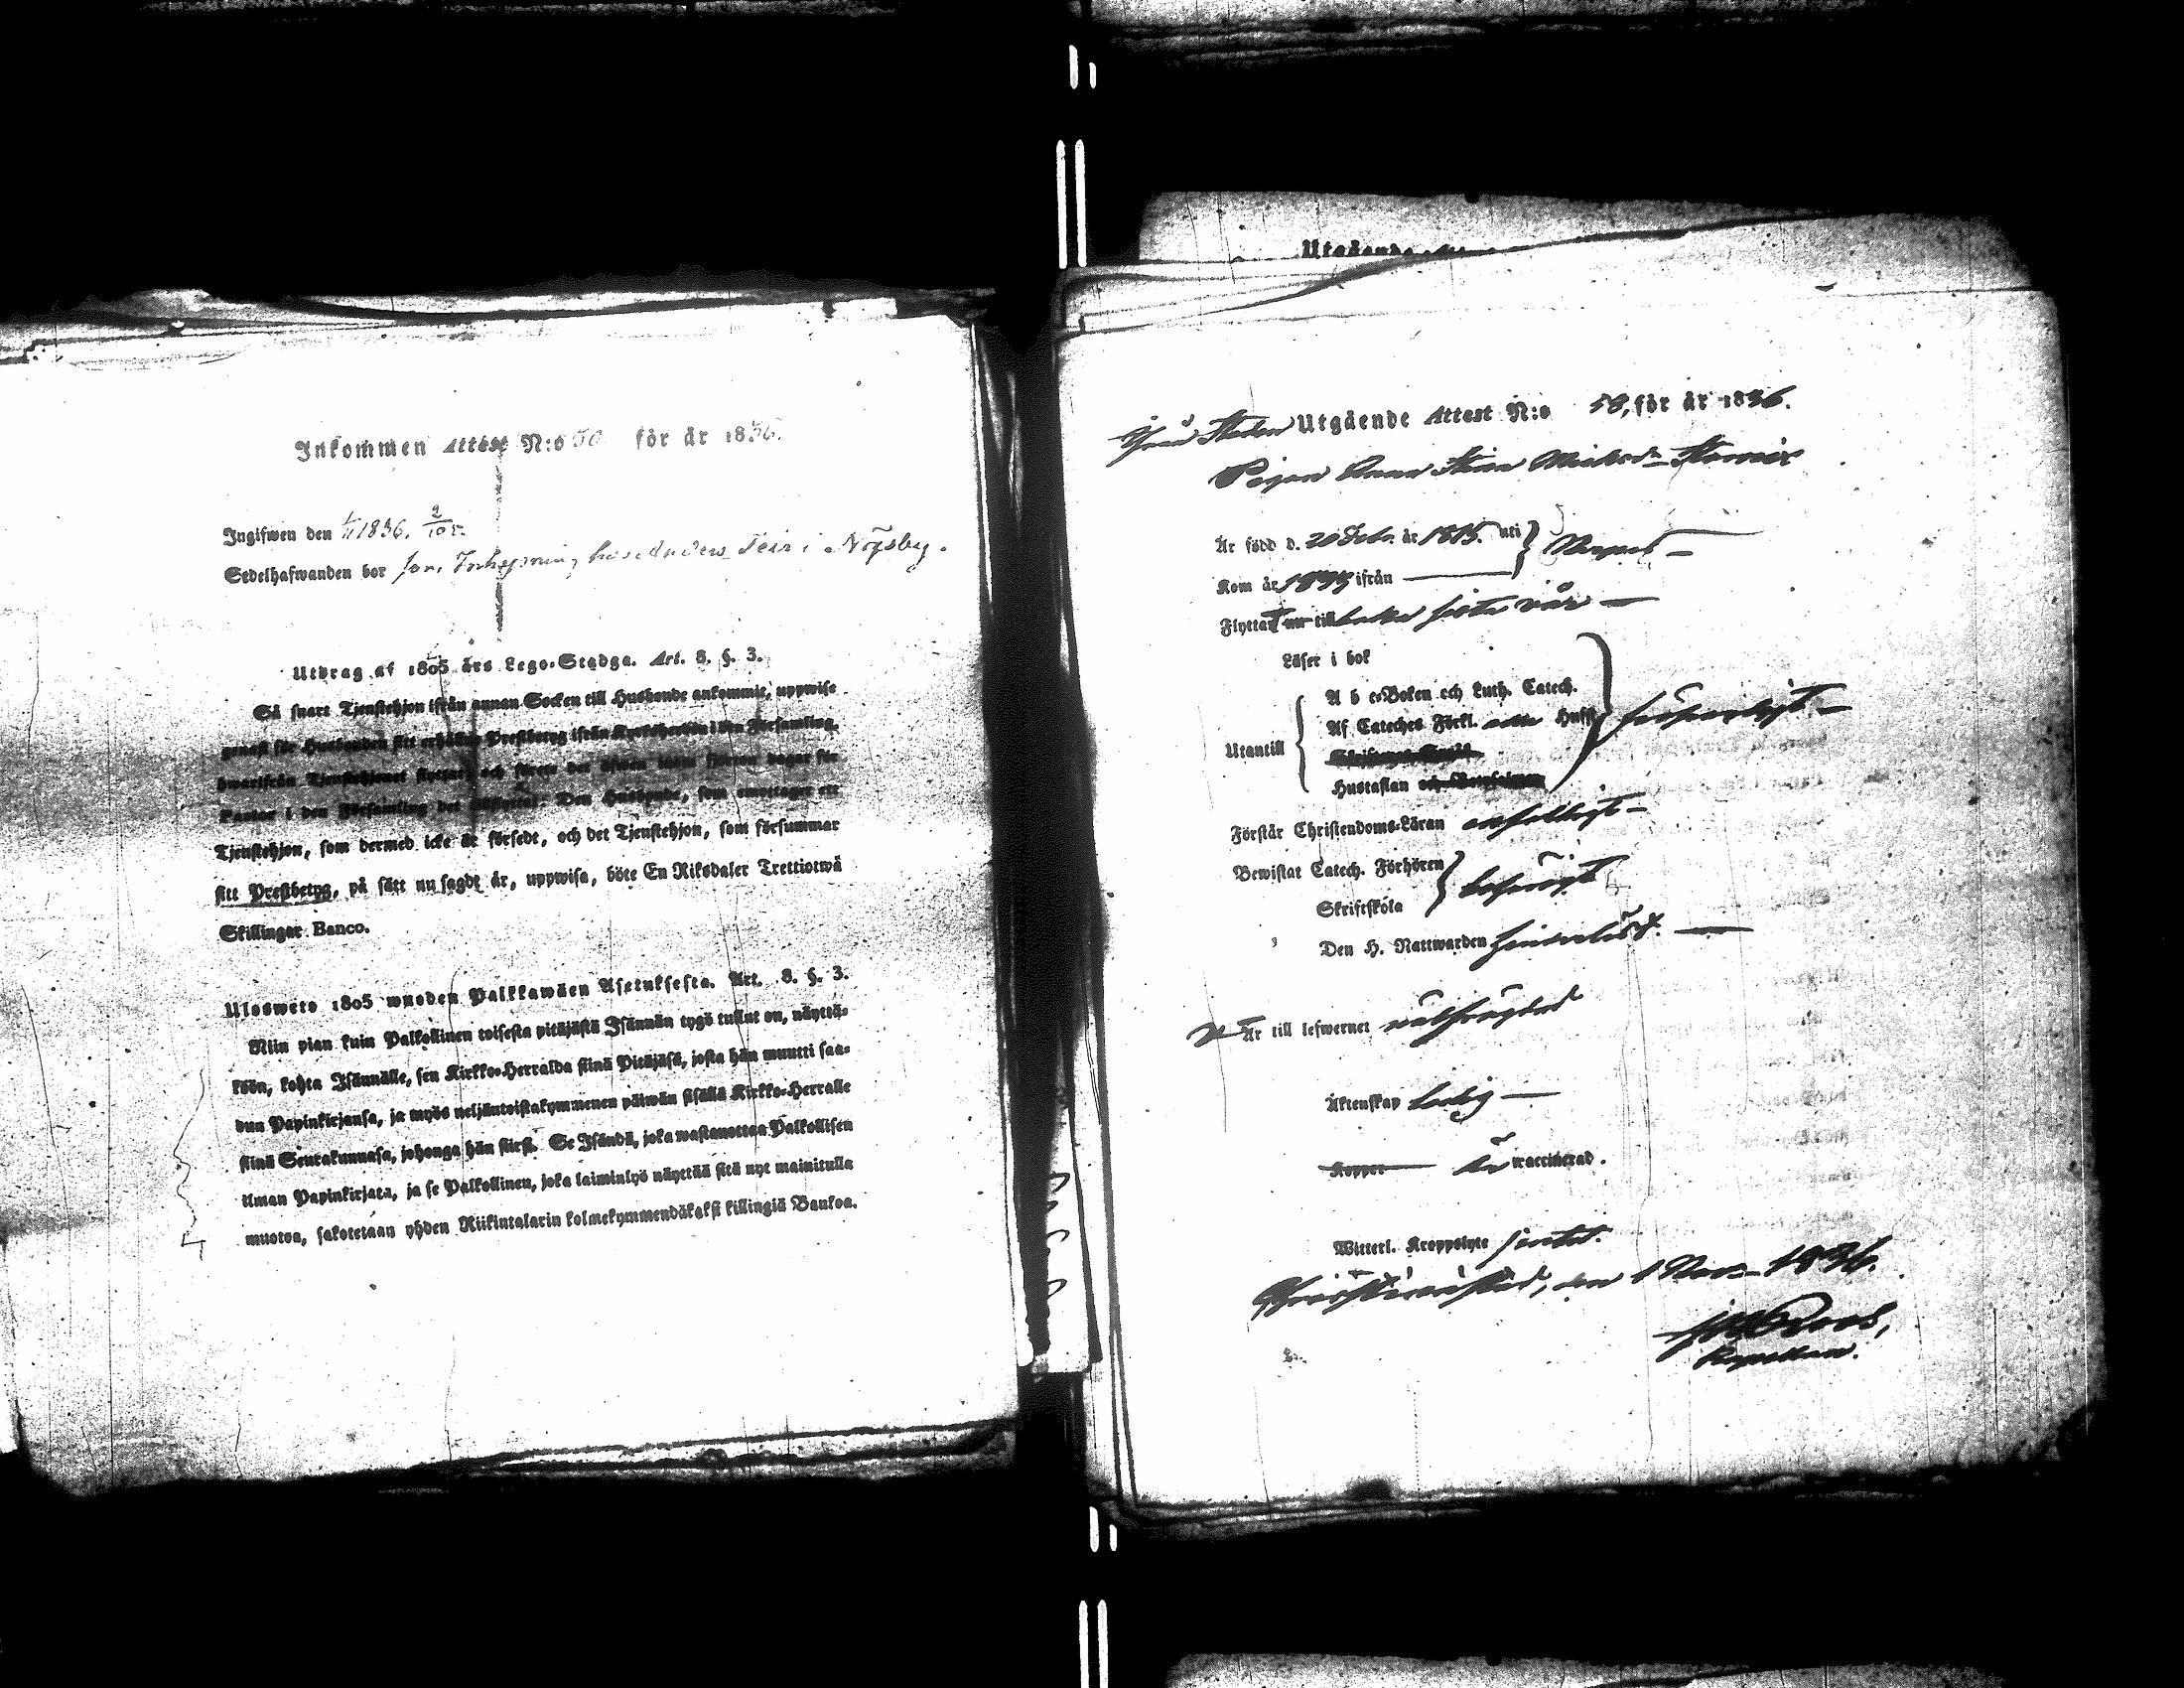 Inkommen Attest N:o 50 för år 1836.
Ingifwen den 1/11 1836.
Sedelhafwanden bor som Inhysning hos Anders Teir i Nöjsby.
Utdrag af 1805 års Lego-Stadga. Art. 8. §. 3.
Så snart Tjenstehjon ifrån annan Socken till Husbonde ankommit, uppwise
genast för Husbonden sitt erhållna Prestbetyg ifrån Kyrkoherden i den Församling,
hwarifrån Tjenstehjonet flyttat, och förete det äfwen inom fjorton dagar för
Pastor i den Församling det tillflyttat. Den Husbonde, som emottager ett
Tjenstehjon, som dermed icke är försedt, och det Tjenstehjon, som försummar
sitt Prestbetyg, på sätt nu sagdt är, uppwisa, böte En Riksdaler Trettiotwå
Skillingar Banco.
Ulosweto 1805 wuoden Palkkawäen Asetuksesta. Art. 8. §. 3.
Niin pian kuin Palkollinen toisesta pitäjästä Isännän tygö tullut on, näyttä-
köön, kohta Isännälle, sen Kirkko-Herralda siinä Pitäjäsä, josta hän muutti saa-
dun Papinkirjansa, ja myös neljäntoistakymmenen päiwän sisällä Kirkko-Herralle
siinä Seurakunnasa, johonga hän siirsi. Se Isändä, joka wastanottaa Palkollisen
ilman Papinkirjata, ja se Palkollinen, joka laiminlyö näyttää sitä nyt mainitulla
muotoa, sakotetaan yhden Riikintalarin kolmekymmendäkaksi killingiä Bankoa.
Utgående Attest
Från Staden Utgående Attest N:o 50, för år 1836.
Pigan Anna Stina Michelsdr
Är född d. 20 Febr. år 1815. uti
Kom år ifrån
Flyttat nu tillbaka sista vår
Läser i bok
A b c-Boken och Luth. Catech.
Af Cateches Förkl. Husf
Utantill
Hustaflan
förswarligt
Förstår Christendoms-Läran enfalligt
Bewistat Catech. Förhören
Skriftskola
besörgt
Den H. Nattwarden
Är till lefwernet välfrägdad
Äktenskap ledig
Koppor är waccinerad.
Witterl. Kroppslyte
Christinestad, den 1 Nov. 1836.
Roos,
Kapellan.